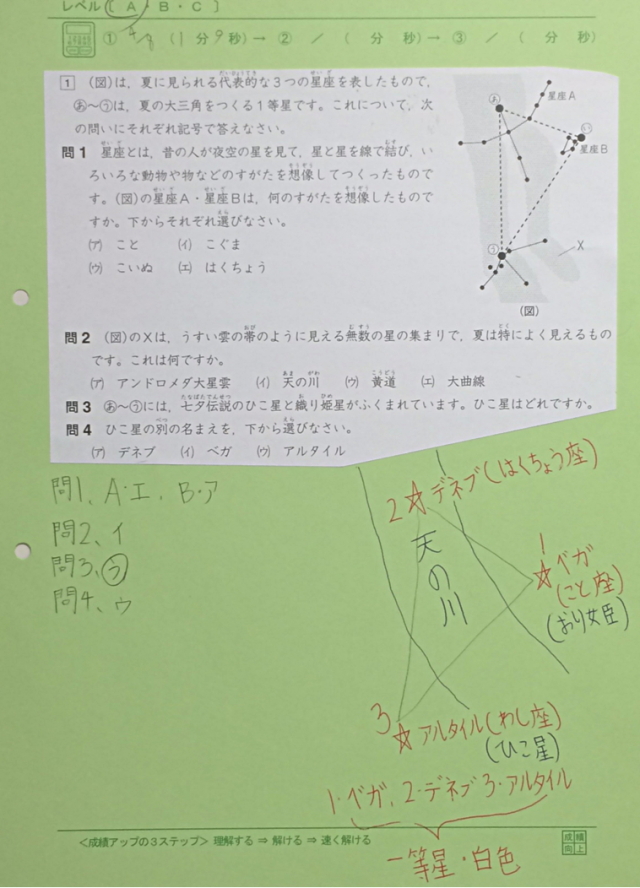 レベル〔 A ・ B ・ C 〕
① 4/8 (1分9秒) → ② / ( 分 秒) → ③ / ( 分 秒)
1 (図)は，夏に見られる代表的な3つの星座を表したもので，
あ～うは，夏の大三角をつくる1等星です。これについて，次
の問いにそれぞれ記号で答えなさい。
問1 星座とは，昔の人が夜空の星を見て，星と星を線で結び，い
ろいろな動物や物などのすがたを想像してつくったもので
す。(図)の星座A・星座Bは，何のすがたを想像したもので
すか。下からそれぞれ選びなさい。
(ア) こと (イ) こぐま
(ウ) こいぬ (エ) はくちょう
あ
星座A
い
星座B
う
X
(図)
問2 (図)のXは，うすい雲の帯のように見える無数の星の集まりで，夏は特によく見えるもの
です。これは何ですか。
(ア) アンドロメダ大星雲 (イ) 天の川 (ウ) 黄道 (エ) 大曲線
問3 あ～うには，七夕伝説のひこ星と織り姫星がふくまれています。ひこ星はどれですか。
問4 ひこ星の別の名まえを，下から選びなさい。
(ア) デネブ (イ) ベガ (ウ) アルタイル
問1、A・エ、B・ア
問2、イ
問3、う
問4、ウ
2☆デネブ(はくちょう座)
天の川
1
☆ベガ
(こと座)
(おり女臣)
3
☆アルタイル(わし座)
(ひこ星)
1・ベガ、2・デネブ 3・アルタイル
一等星・白色
<成績アップの3ステップ> 理解する ⇒ 解ける ⇒ 速く解ける
成績
向上